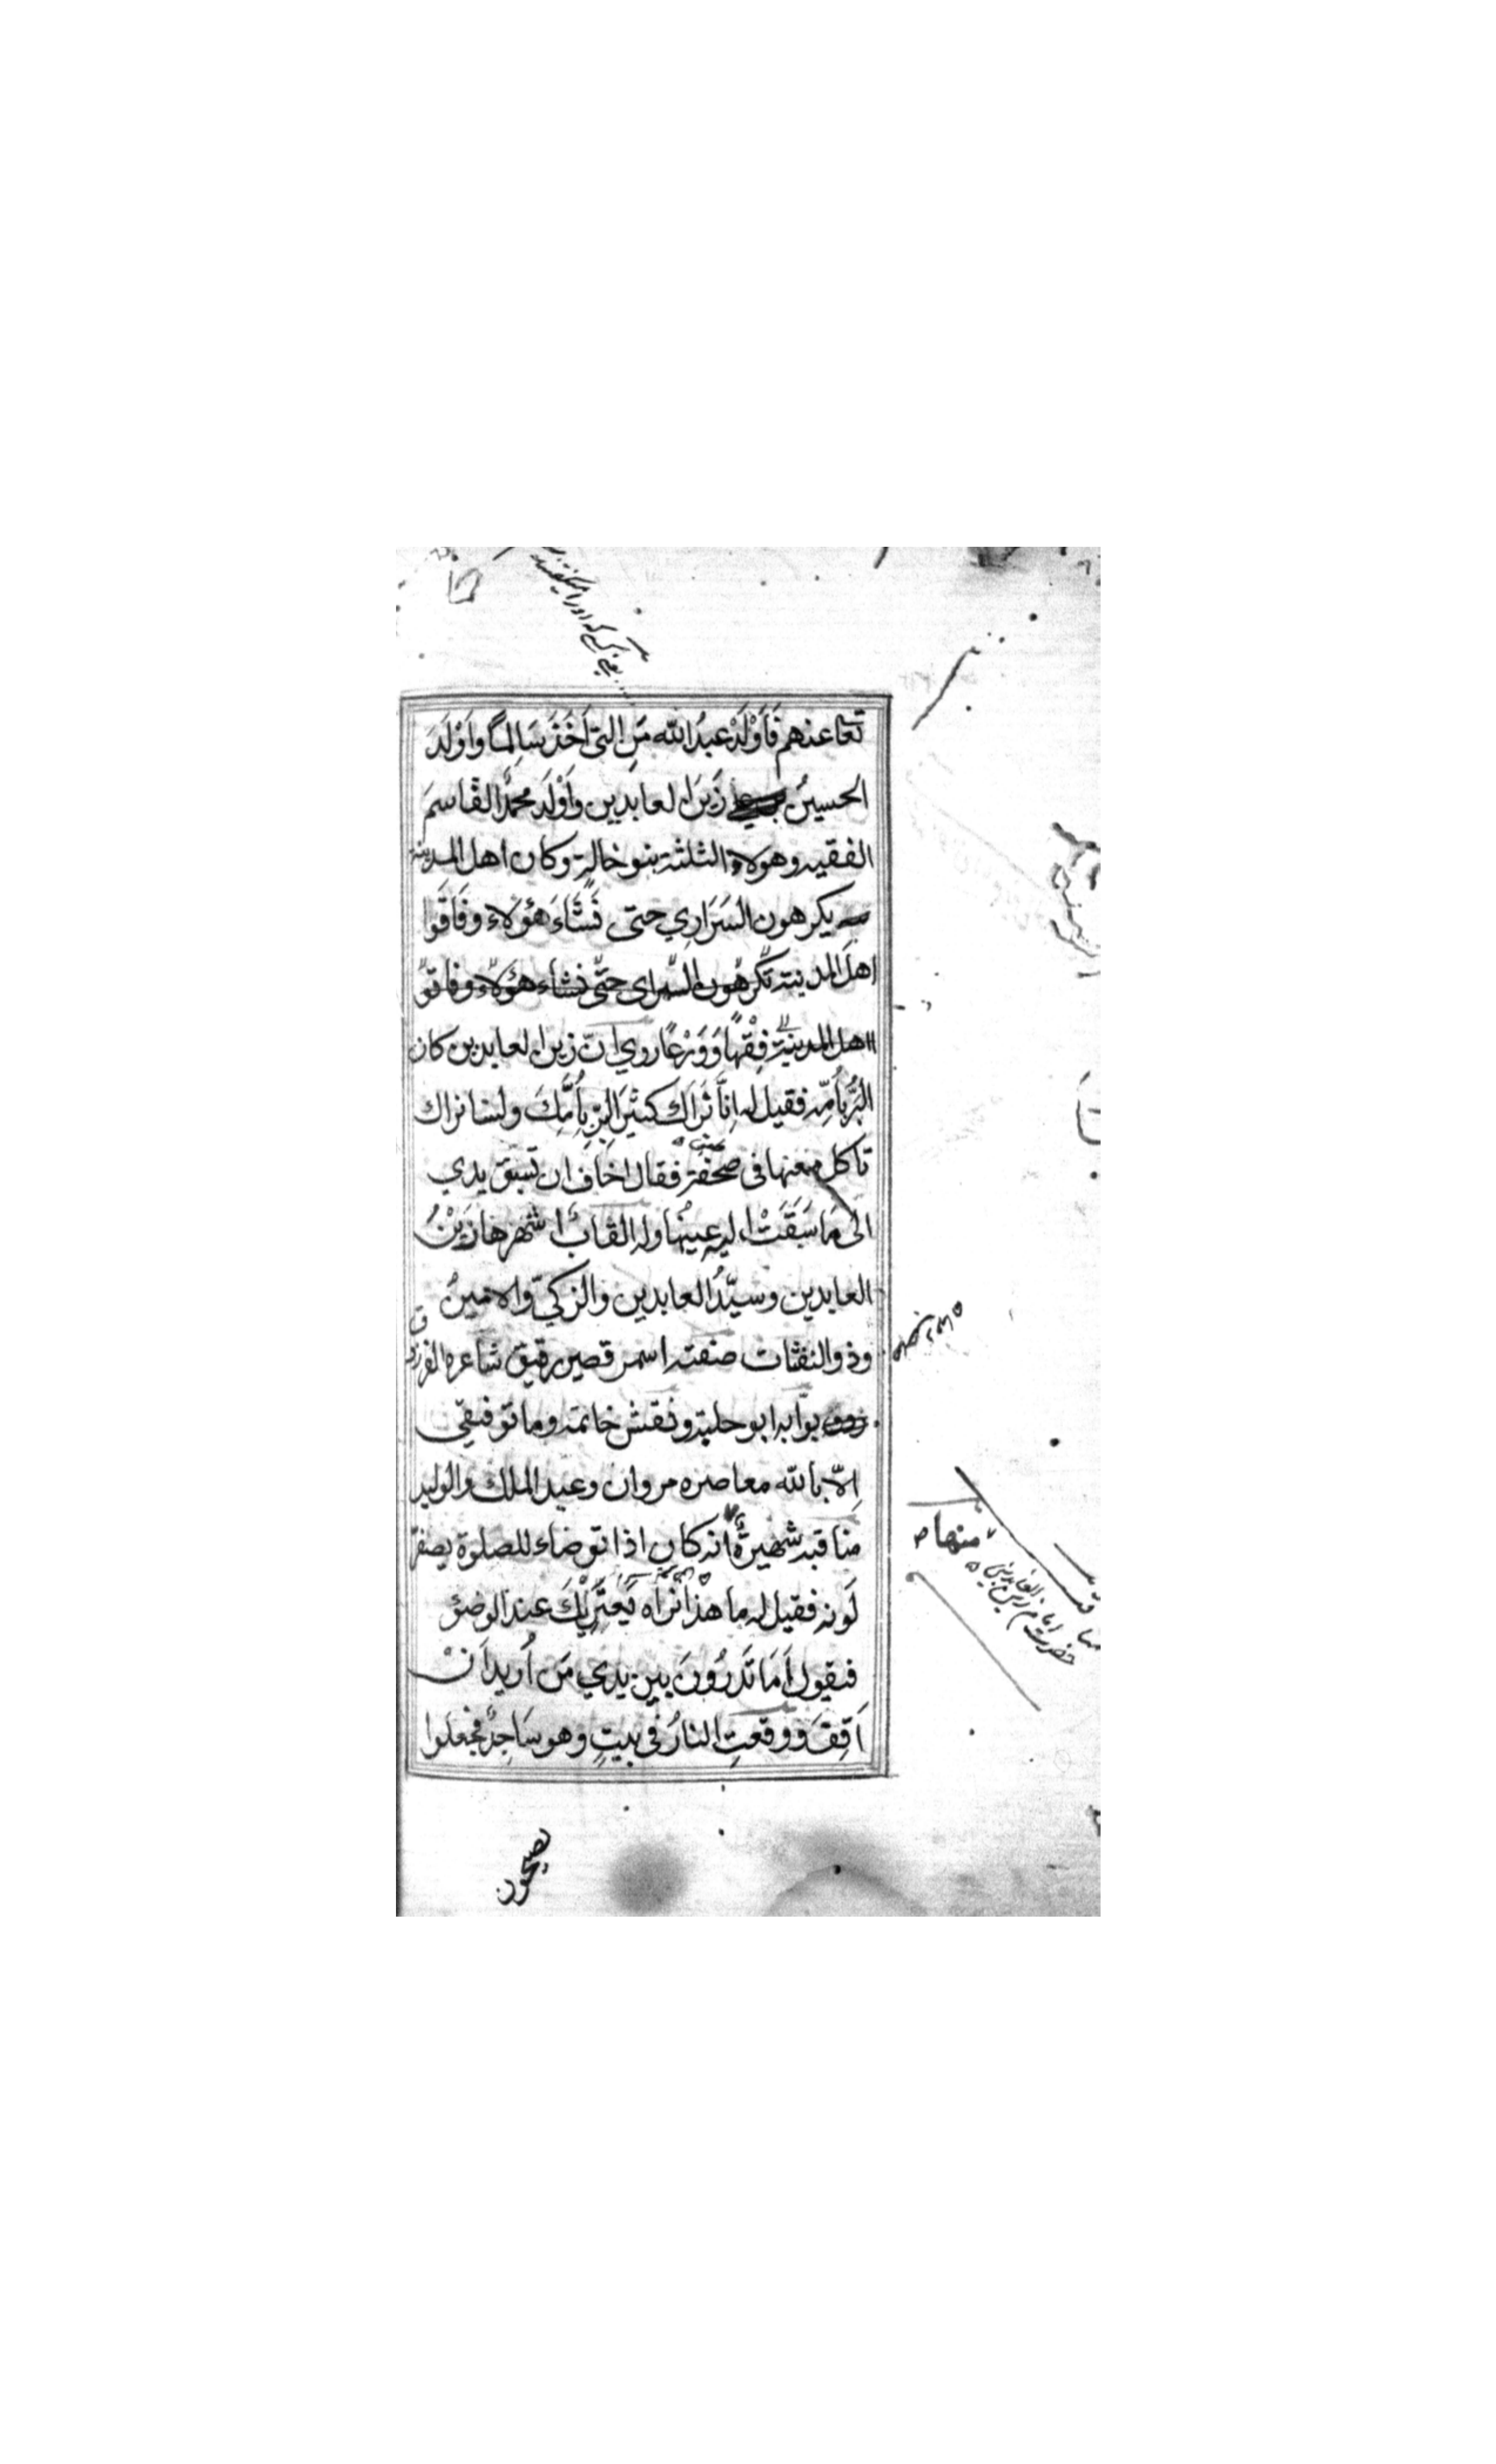 تعا عنهم فَاَوْلَدَ عبدُ الله مَنِ التى اَخَذَ سَالِمًا واَوْلَدَ
الحسينُ زَينَ العابدين واَوْلَدَ محمدُ القاسمَ
الفقيه وهولاء الثلثة بنو خالة وكان اهل المدينة
يكرهون السَرَارِي حتى نَشَّاءَ هٰؤلاء وفَاقَوا
اهلَ المدينة تكرهون السراى حتّى نشاء هؤلاء وفاقوا
اهل المدينة فِقْهًا وَوَرَعًا روي انّ زين العابدين كان
البَرُّ بأُمِّه فقيل له اِنَّا نَرَاكَ كثيرَ البِرِّ بِأُمِّكَ ولسنا نراك
تاكل معها فى صَحْفَةٍ فقال اخاف ان تسبق يدي
الى مَا سَبَقَتْ اليه عينُها وله القابٌ اشهرها زَيْنُ
العابدين وسيّدُ العابدين والزكيّ والامينُ
وذو النفثات صفته اسمر قصير رقيق شاعره الفرزدق
بوّابه ابو حلبة ونقش خاتمه وما توفيقي
اِلّا بالله معاصره مروان وعبد الملك والوليد
مناقبه شهيرةٌ انه كان اذا توضاء للصلوة يصفرّ
لَونه فقيل له ما هذا نراه يَعْتَرِيْكَ عند الوضؤ
فيقول اَمَا تَدرُوْنَ بين يدي مَن اُريد اَنْ
اَقِفَ ووقعتِ النارُ فى بيتٍ وهو سَاجِدٌ فجعلوا
يصيحون
منها
حضرت امام زين العابدين